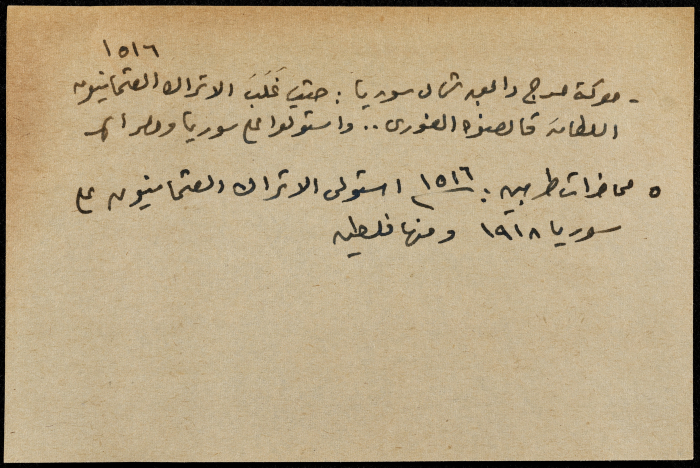 ١٥١٦
- معركة مرج دابق شمال سوريا: حتى غَلَبَ الاتراك العثمانيون
السلطان قانصوه الغورى .. واستولوا على سوريا ومصر
٥ محاضرات طربين: ١٥١٦ استولى الاتراك العثمانيون على
سوريا ١٩١٨ ومنها فلسطين